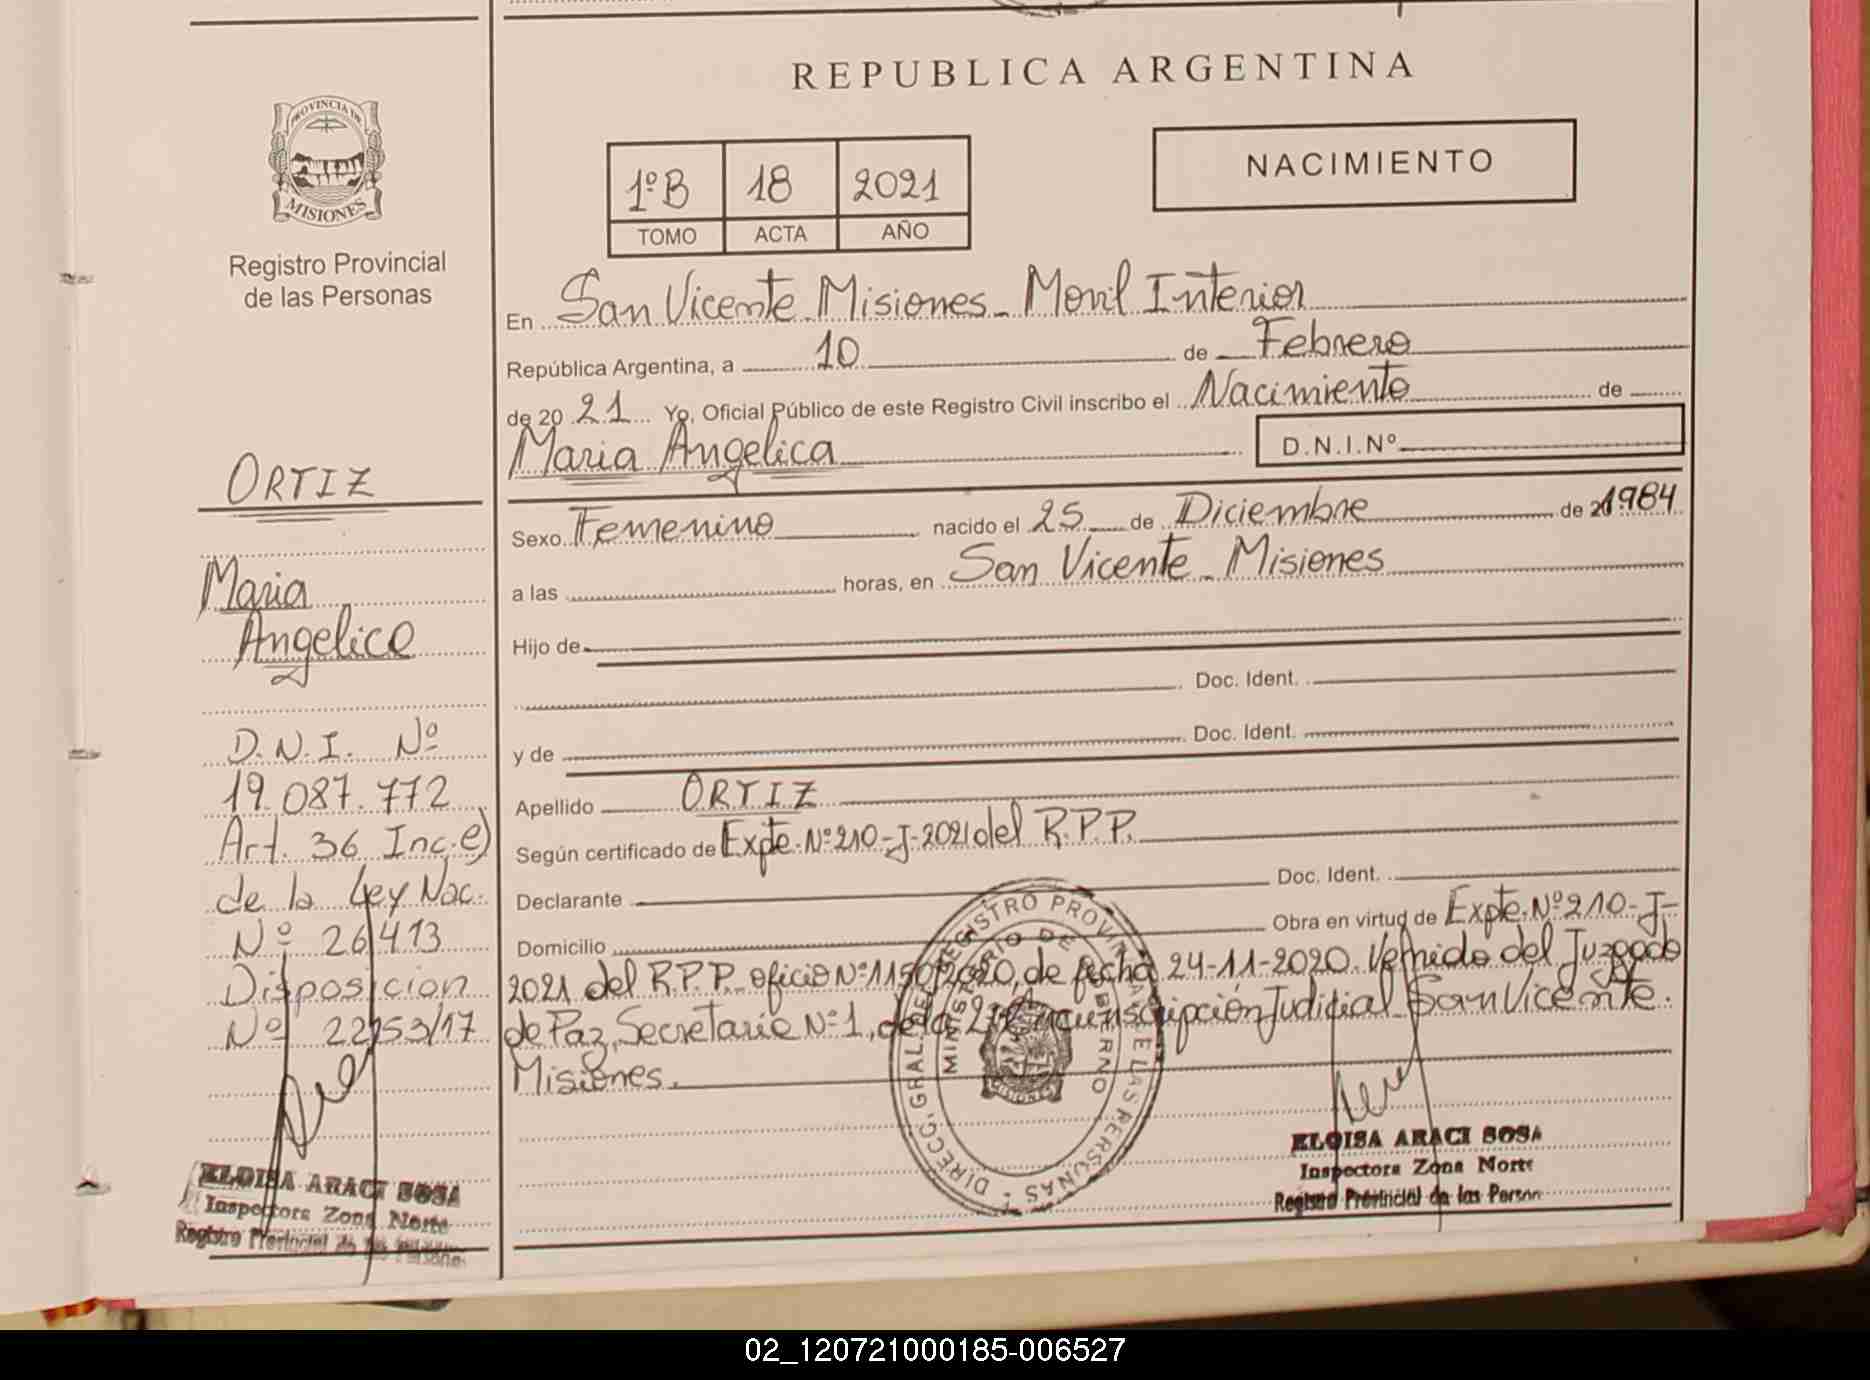 REPUBLICA ARGENTINA
PROVINCIA DE
MISIONES
Registro Provincial
de las Personas
1º B 18 2021
TOMO ACTA AÑO
NACIMIENTO
En San Vicente Misiones - Movil Interior
República Argentina, a 10 de Febrero
de 20 21 Yo, Oficial Público de este Registro Civil inscribo el Nacimiento de
Maria Angelica D.N.I.Nº
Sexo Femenino nacido el 25 de Diciembre de 20 1984
a las horas, en San Vicente - Misiones
Hijo de
Doc. Ident.
y de Doc. Ident.
Apellido ORTIZ
Según certificado de Expte. Nº 210-J-2021 del R.P.P.
Declarante Doc. Ident.
Domicilio Obra en virtud de Expte. Nº 210-J-
2021 del R.P.P. oficio Nº 1150/2020, de fecha 24-11-2020. Venido del Juzgado
de Paz, Secretaria Nº 1, de la 2da Circunscripción Judicial San Vicente.
Misiones.
ORTIZ
Maria
Angelica
D.N.I. Nº
19.087.772
Art. 36 Inc. e)
de la Ley Nac.
Nº 26413
Disposicion
Nº 22253/17
ELOISA ARACI SOSA
Inspectora Zona Norte
Registro Provincial de las Personas
DIRECC. GRAL. DEL REGISTRO PROVINCIAL DE LAS PERSONAS
MINISTERIO DE GOBIERNO
MISIONES
ELOISA ARACI SOSA
Inspectora Zona Norte
Registro Provincial de las Person
02_120721000185-006527